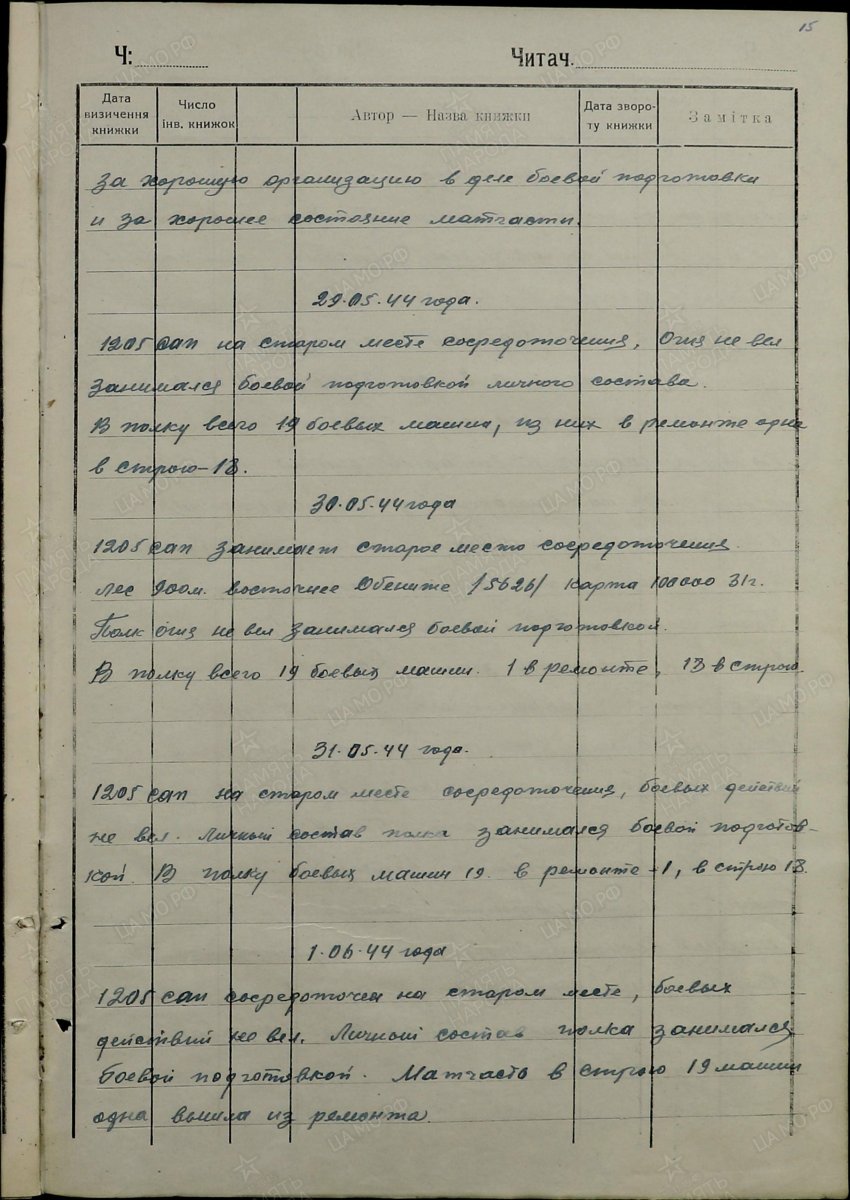 15
Ч:
Читач.
Дата визичення книжки
Число інв. книжок
Автор — Назва книжки
Дата зворо-ту книжки
Замітка
за хорошую организацию в деле боевой подготовки
и за хорошее состояние матчасти.
29.05.44 года.
1205 сап на старом месте сосредоточения, Огня не вел
занимался боевой подготовкой личного состава.
В полку всего 19 боевых машин, из них в ремонте одна
в строю-18.
30.05.44 года
1205 сап занимает старое место сосредоточения
лес 900м. восточнее /5626/ карта 100000 31г.
Полк огня не вел занимался боевой подготовкой.
В полку всего 19 боевых машин. 1 в ремонте, 18 в строю
31.05.44 года.
1205 сап на старом месте сосредоточения, боевых действий
не вел. Личный состав полка занимался боевой подготов-
кой. В полку боевых машин 19. в ремонте -1, в строю 18.
1.06.44 года
1205 сап сосредоточен на старом месте, боевых
действий не вел. Личный состав полка занимался
боевой подготовкой. Матчасть в строю 19 машин
одна вышла из ремонта.